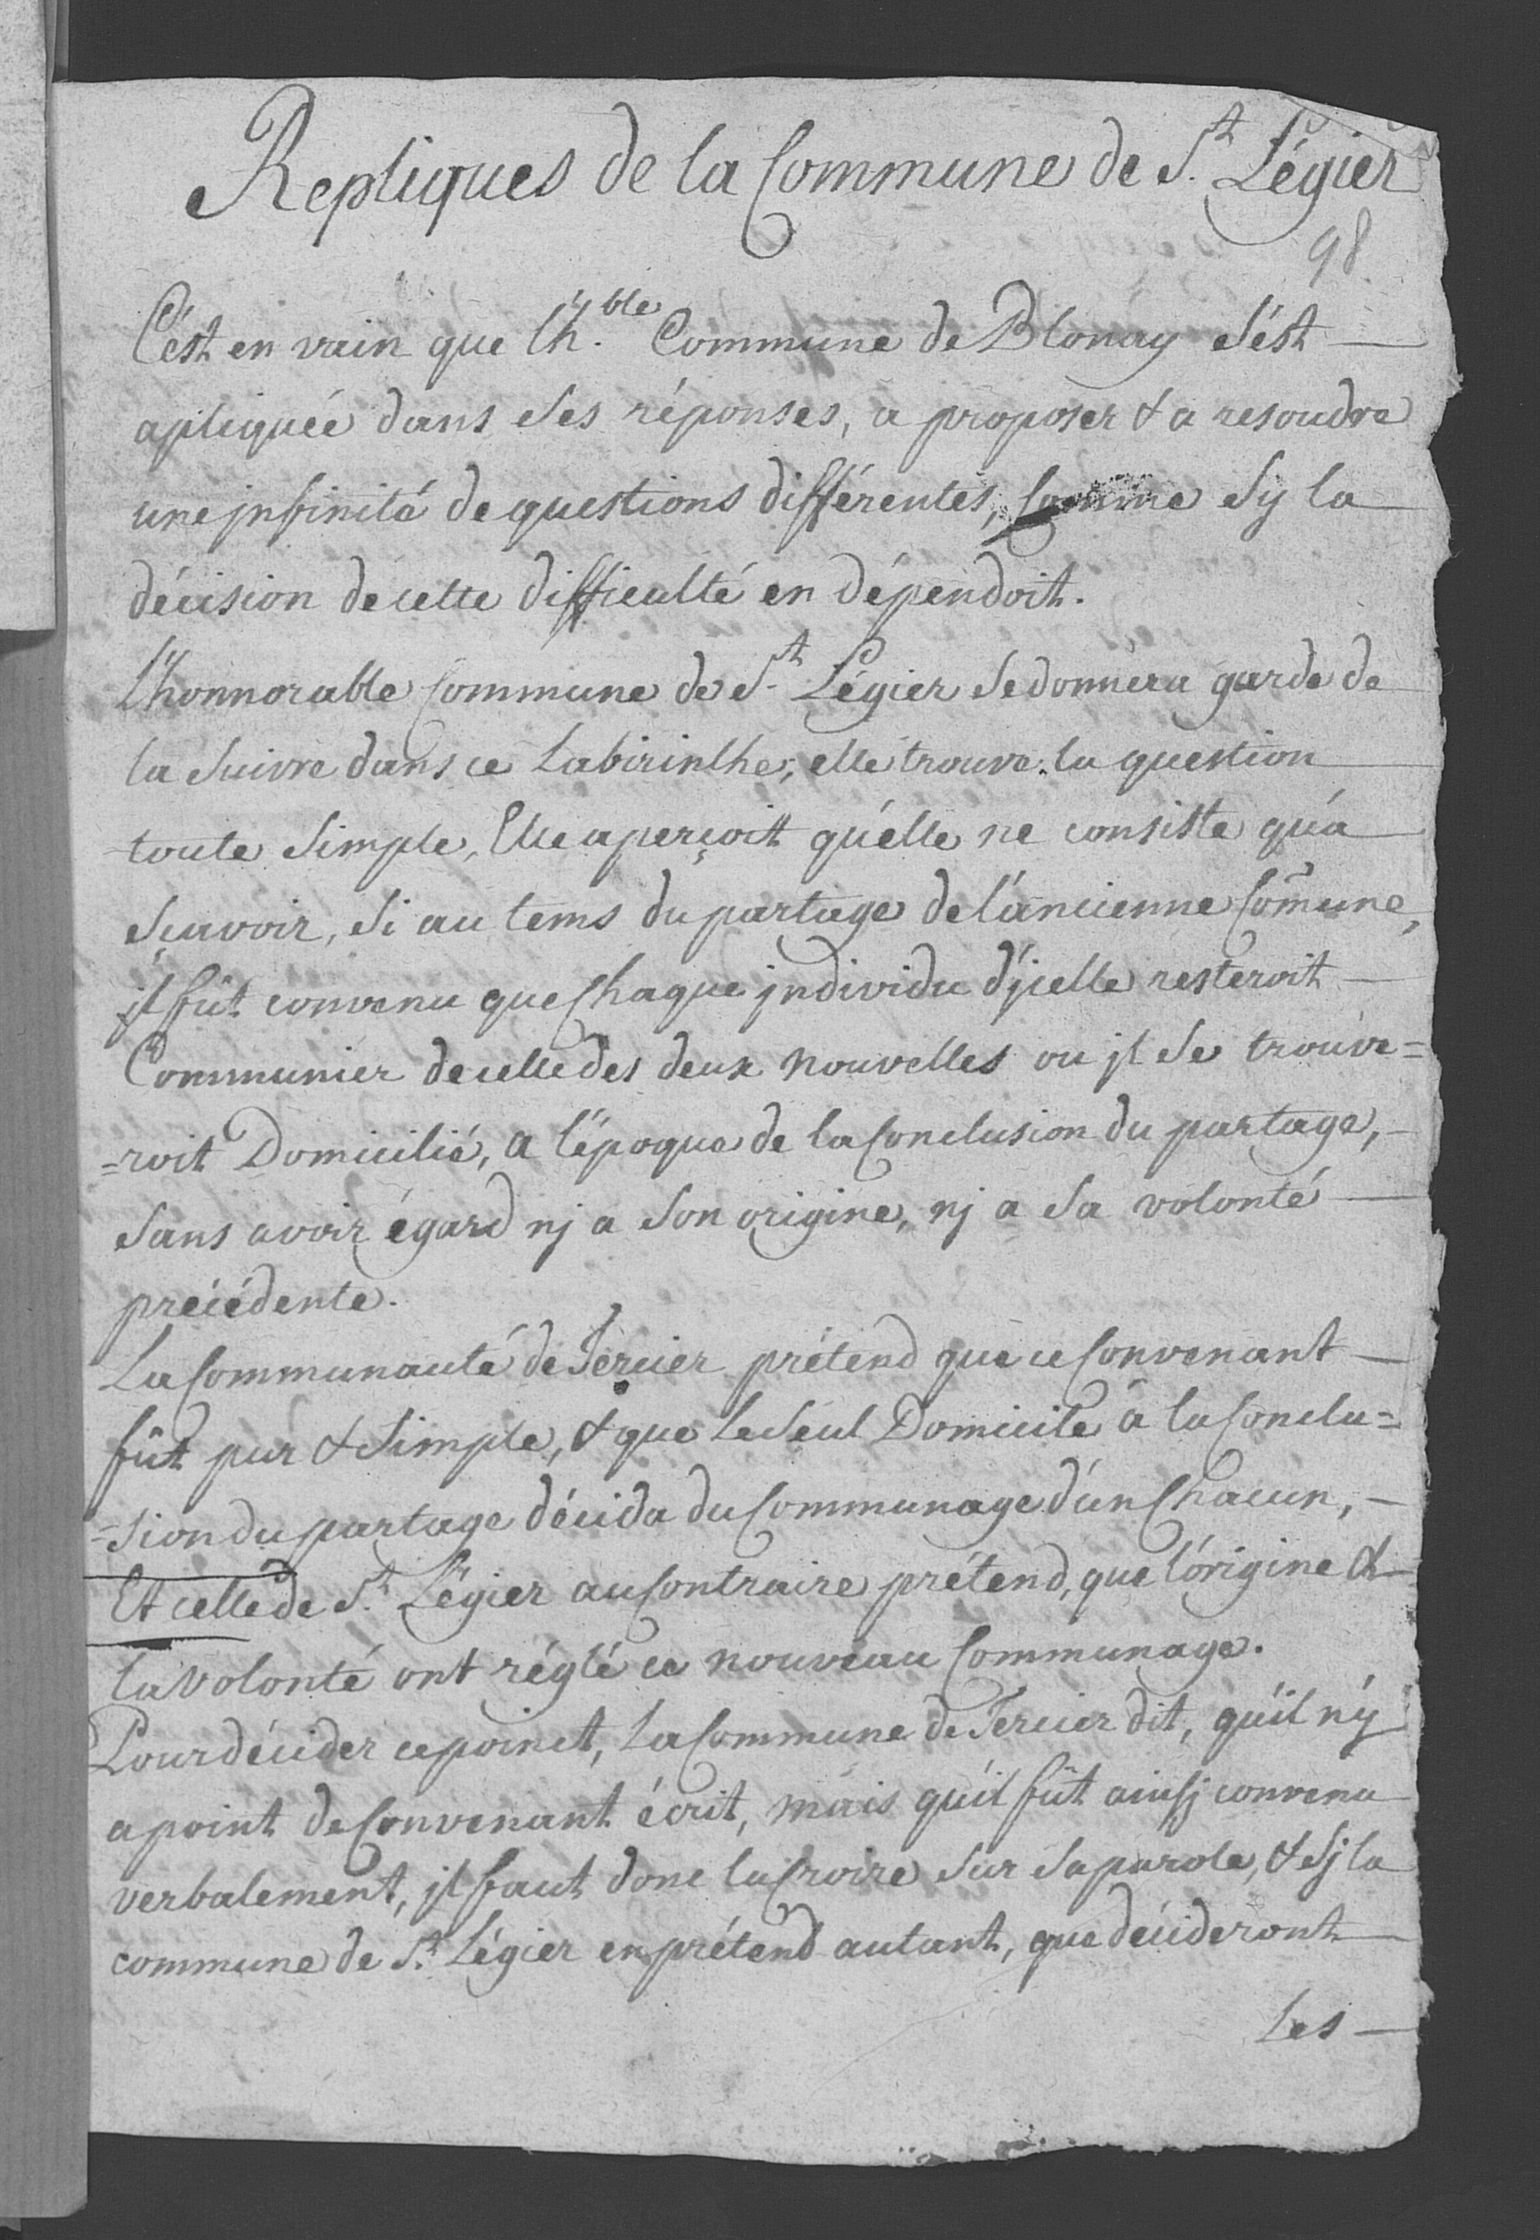 Repliques de la Commune de S.t Légier
98
C'est en vain que l'h.ble Commune de Blonay s'est —
apliquée dans ses réponses, a proposer & a resoudre
une jnfinité de questions différentes, Comme sy la
décision de cette difficulté en dépendoit.
L'honnorable Commune de S.t Légier se donnera garde de
la suivre dans ce Labirinthe, elle trouve la question
toute simple, Elle aperçoit qu'elle ne consiste qu'a
sçavoir, si au tems du partage de l'ancienne Com̃une,
jl fût convenu que Chaque jndividu d'jcelle resteroit —
Communier de celle des deux nouvelles ou jl se trouve=
=roit Domicilié, a l'époque de la Conclusion du partage, —
sans avoir égard nj a son origine, nj a sa volonté —
précédente.
La Communauté de Tercier prétend que ce Convenant —
fût pur & simple, & que le seul Domicile à la Conclu=
=sion du partage décida du Communage d'un Chacun, —
Et celle de S.t Légier au Contraire prétend, que l'origine &
la volonté ont réglé ce nouveau Communage.
Pour décider ce poinct, La Commune de Tercier dit, qu'il n'y
a point de Convenant écrit, mais qu'il fût ainsj convenu
verbalement, jl faut donc la Croire sur sa parole, & sj la
commune de S.t Légier en prétend autant, que décideront —
Les —